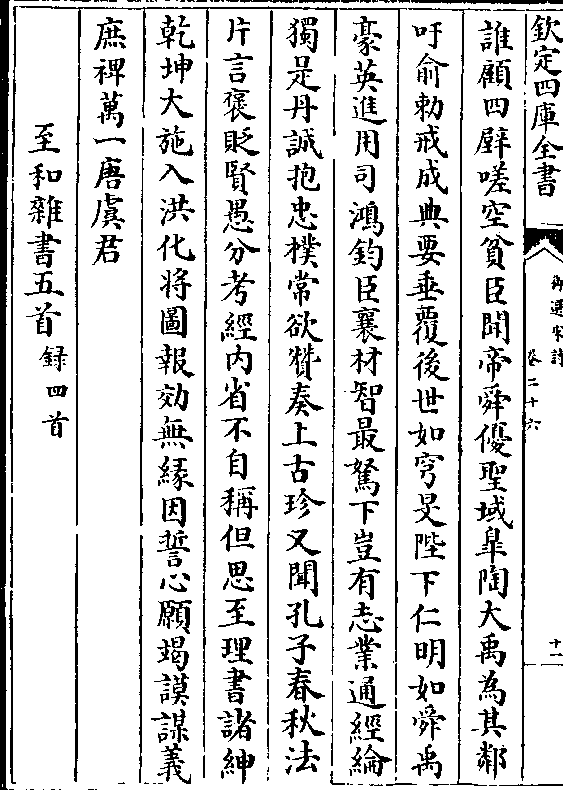 欽定四庫全書
御選宋詩
卷二十六
十一
誰顧四壁嗟空貧臣聞帝舜優聖域臯陶大禹為其鄰
吁俞勅戒成典要垂覆後世如穹旻陛下仁明如舜禹
豪英進用司鴻鈞臣襄材智最駑下豈有志業通經綸
獨是丹誠抱忠樸常欲贊奏上古珍又聞孔子春秋法
片言褒貶賢愚分考經内省不自稱但思至理書諸紳
乾坤大施入洪化將圖報效無緣因誓心願竭謨謀義
庶裨萬一唐虞君
至和雜書五首 録四首